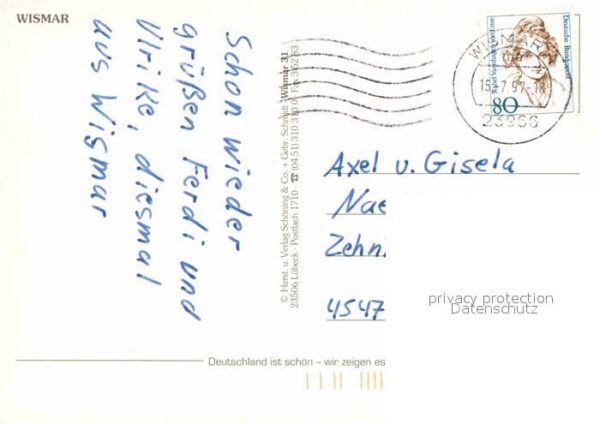 WISMAR
Schon wieder
grüßen Ferdi und
Ulrike, diesmal
aus Wismar
© Herst. u. Verlag Schöning & Co. + Gebr. Schmidt · Wismar 31
23506 Lübeck · Postfach 1710 · ☎ (04 51) 310 310
Deutsche Bundespost
80
WISMAR
23966
Axel u. Gisela
Nae
Zehn
4547
privacy protection
Datenschutz
Deutschland ist schön – wir zeigen es